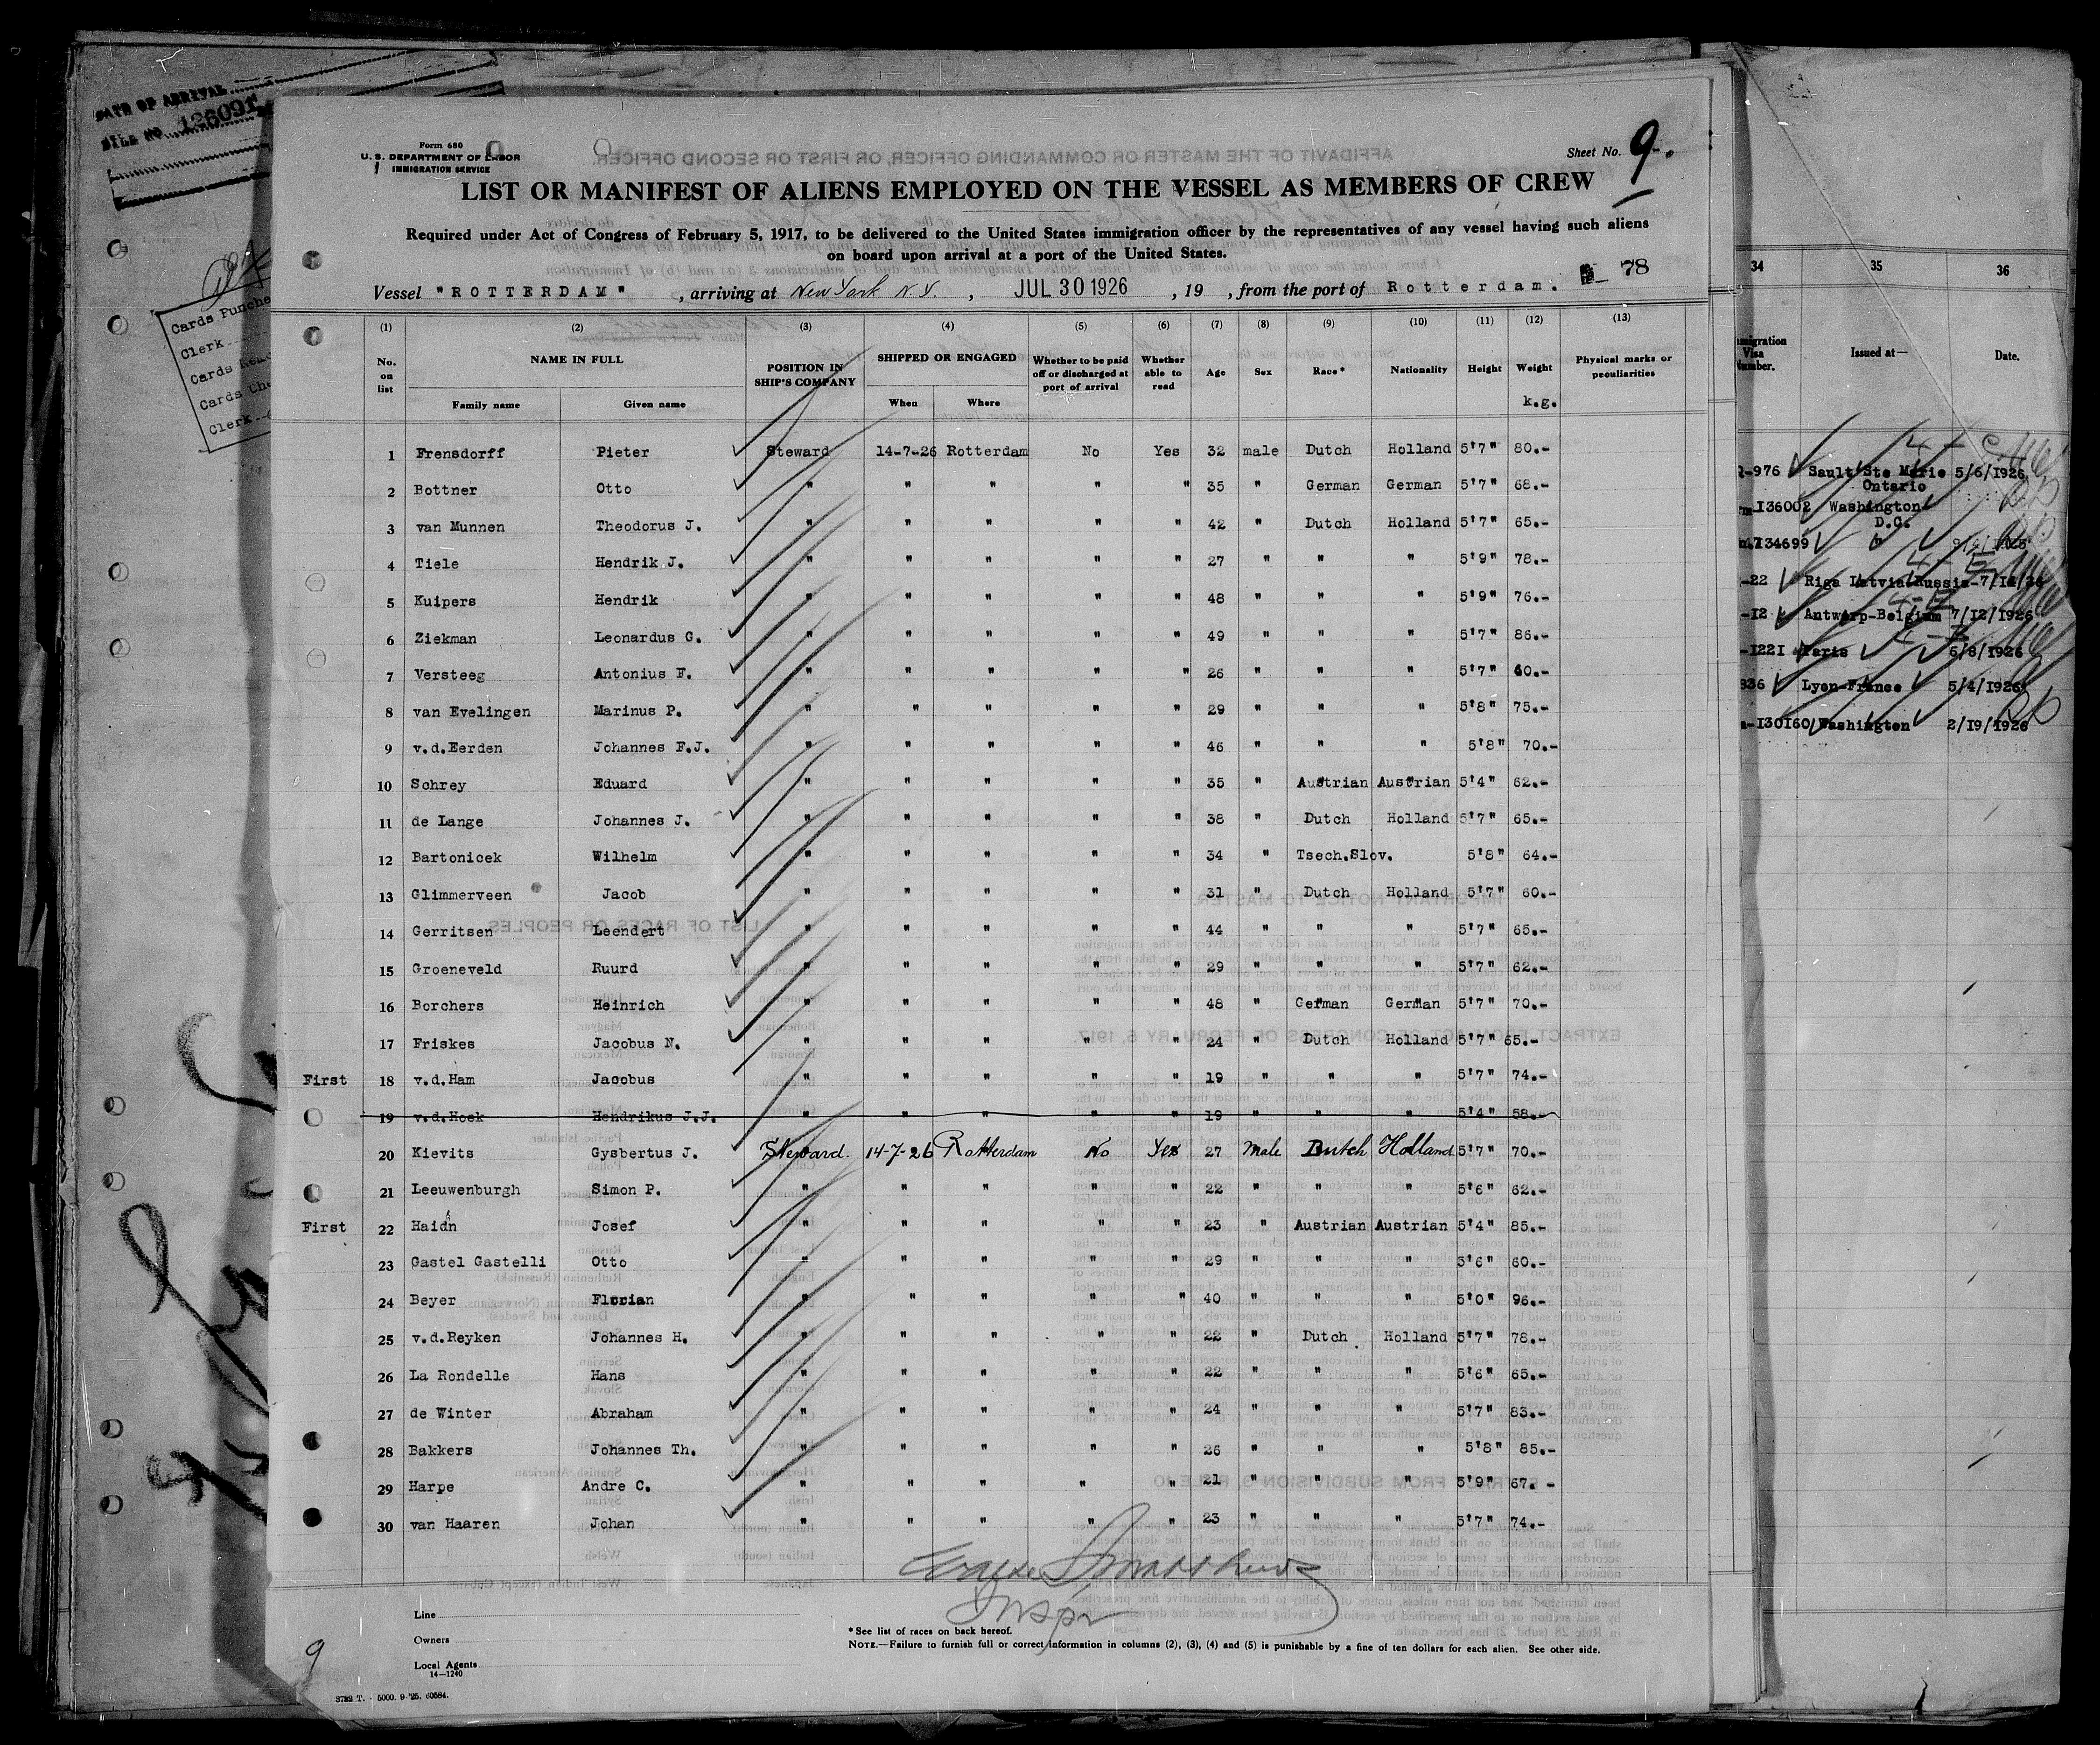 DATE OF ARRIVAL
FILE NO. 126091
Cards Punche
Clerk
Cards
Cards Che
Clerk
Form 680
U. S. DEPARTMENT OF LABOR
IMMIGRATION SERVICE
Sheet No. 9.
LIST OR MANIFEST OF ALIENS EMPLOYED ON THE VESSEL AS MEMBERS OF CREW
Required under Act of Congress of February 5, 1917, to be delivered to the United States immigration officer by the representatives of any vessel having such aliens
on board upon arrival at a port of the United States.
78
Vessel "ROTTERDAM" , arriving at New York N.Y. , JUL 30 1926 , 19 , from the port of Rotterdam.
(1) (2) (3) (4) (5) (6) (7) (8) (9) (10) (11) (12) (13)
No. on list NAME IN FULL Family name Given name POSITION IN SHIP'S COMPANY SHIPPED OR ENGAGED When Where Whether to be paid off or discharged at port of arrival Whether able to read Age Sex Race* Nationality Height Weight k.g. Physical marks or peculiarities
1 Frensdorff Pieter Steward 14-7-26 Rotterdam No Yes 32 male Dutch Holland 5'7" 80.-
2 Bottner Otto " " " " " 35 " German German 5'7" 68.-
3 van Munnen Theodorus J. " " " " " 42 " Dutch Holland 5'7" 65.-
4 Tiele Hendrik J. " " " " " 27 " " " 5'9" 78.-
5 Kuipers Hendrik " " " " " 48 " " " 5'9" 76.-
6 Ziekman Leonardus G. " " " " " 49 " " " 5'7" 86.-
7 Versteeg Antonius F. " " " " " 26 " " " 5'7" 60.-
8 van Evelingen Marinus P. " " " " " 29 " " " 5'8" 75.-
9 v.d.Eerden Johannes F.J. " " " " " 46 " " " 5'8" 70.-
10 Schrey Eduard " " " " " 35 " Austrian Austrian 5'4" 62.-
11 de Lange Johannes J. " " " " " 38 " Dutch Holland 5'7" 65.-
12 Bartonicek Wilhelm " " " " " 34 " Tsech.Slov. 5'8" 64.-
13 Glimmerveen Jacob " " " " " 31 " Dutch Holland 5'7" 60.-
14 Gerritsen Leendert " " " " " 44 " " " 5'7" 65.-
15 Groeneveld Ruurd " " " " " 29 " " " 5'7" 62.-
16 Borchers Heinrich " " " " " 48 " German German 5'7" 70.-
17 Friskes Jacobus N. " " " " " 24 " Dutch Holland 5'7" 65.-
First 18 v.d.Ham Jacobus " " " " " 19 " " " 5'7" 74.-
19 v.d.Hoek Hendrikus J.J. " " " " 19 " " " 5'4" 58.-
20 Kievits Gysbertus J. Steward. 14-7-26 Rotterdam No Yes 27 Male Dutch Holland 5'7" 70.-
21 Leeuwenburgh Simon P. " " " " " 22 " " " 5'6" 62.-
First 22 Haidn Josef " " " " " 23 " Austrian Austrian 5'4" 85.-
23 Gastel Gastelli Otto " " " " " 29 " " " 5'6" 60.-
24 Beyer Florian " " " " " 40 " " " 5'0" 96.-
25 v.d.Reyken Johannes H. " " " " " 22 " Dutch Holland 5'7" 78.-
26 La Rondelle Hans " " " " " 22 " " " 5'6" 65.-
27 de Winter Abraham " " " " " 24 " " " 5'7" 83.-
28 Bakkers Johannes Th. " " " " " 26 " " " 5'8" 85.-
29 Harpe Andre C. " " " " " 21 " " " 5'9" 67.-
30 van Haaren Johan " " " " " 23 " " " 5'7" 74.-
Inspr
Line
Owners
Local Agents
14—1240
* See list of races on back hereof.
NOTE.—Failure to furnish full or correct information in columns (2), (3), (4) and (5) is punishable by a fine of ten dollars for each alien. See other side.
9
3782 T. - 5000. 9-'25. 60584.
34 35 36
Visa Issued at— Date.
-976 Sault Ste Marie 5/6/1926
Ontario
I36002 Washington
D.C.
I34699
-22 Riga Latvia Russia-7/1
-12 Antwerp-Belgium 7/12/1926
-1221 Paris 6/8/1926
836 Lyon-France 5/4/1926
-I30160 Washington 2/19/1926